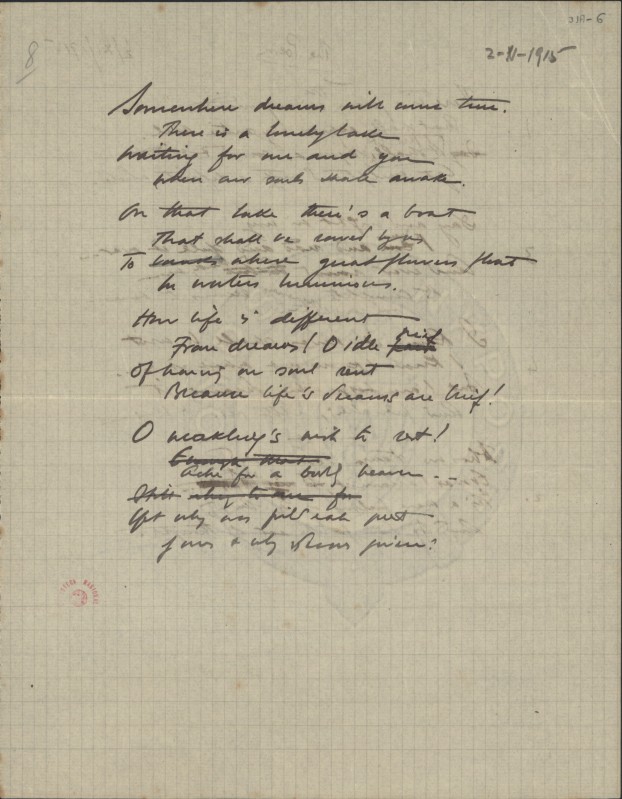 31A-6
2-11-1915
8
Somewhere dreams will come true.
There is a lonely lake
Waiting for me and you
When our souls shall awake.
On that lake there's a boat
That shall be rowed by us
To where great flowers float
In waters luminous.
How life is different
From dreams! O idle grief
Of having our soul rent
Because life's dreams are brief!
O weakling's wish to rest!
Ache for a
Yet why was